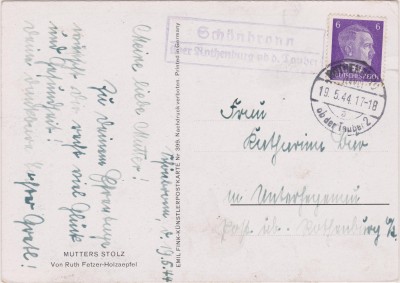 Schönbronn
über Rothenburg ob d. Tauber
6 6
19.5.44.17-18
a
ob der Tauber 2
Schönbronn, d. 17.5.44
Meine liebe Mutter!
Zu Deinem Ehrentage
wünscht Dir recht viel Glück
und Gesundheit!
Deine dankbare
Gretl!
Frau
Katharina
in
Post üb. Rothenburg o/T.
MUTTERS STOLZ
Von Ruth Fetzer-Holzaepfel
EMIL FINK-KÜNSTLERPOSTKARTE Nr 399. Nachdruck verboten. Printed in Germany